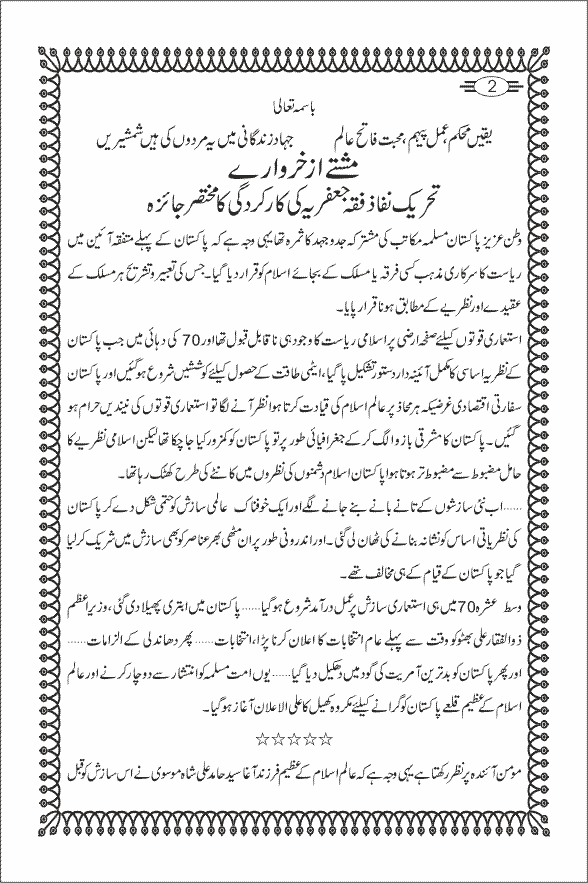 2
باسمہ تعالیٰ
یقیں محکم، عمل پیہم، محبت فاتح عالم جہاد زندگانی میں یہ مردوں کی ہیں شمشیریں
مشتے از خروارے
تحریک نفاذ فقہ جعفریہ کی کارکردگی کا مختصر جائزہ
وطن عزیز پاکستان مسلمہ مکاتب کی مشترکہ جدوجہد کا ثمرہ تھا یہی وجہ ہے کہ پاکستان کے پہلے متفقہ آئین میں
ریاست کا سرکاری مذہب کسی فرقہ یا مسلک کے بجائے اسلام کو قرار دیا گیا۔ جس کی تعبیر و تشریح ہر مسلک کے
عقیدے اور نظریے کے مطابق ہونا قرار پایا۔
استعماری قوتوں کیلئے صفحہ ارضی پر اسلامی ریاست کا وجود ہی ناقابل قبول تھا اور 70 کی دہائی میں جب پاکستان
کے نظریہ اساسی کا مکمل آئینہ دار دستور تشکیل پا گیا، ایٹمی طاقت کے حصول کیلئے کوششیں شروع ہو گئیں اور پاکستان
سفارتی اقتصادی غرضیکہ ہر محاذ پر عالم اسلام کی قیادت کرتا ہوا نظر آنے لگا تو استعماری قوتوں کی نیندیں حرام ہو
گئیں۔ پاکستان کا مشرقی بازو الگ کر کے جغرافیائی طور پر تو پاکستان کو کمزور کیا جا چکا تھا لیکن اسلامی نظریے کا
حامل مضبوط سے مضبوط تر ہوتا ہوا پاکستان اسلام دشمنوں کی نظروں میں کانٹے کی طرح کھٹک رہا تھا۔
......اب نئی سازشوں کے تانے بانے بنے جانے لگے اور ایک خوفناک عالمی سازش کو حتمی شکل دے کر پاکستان
کی نظریاتی اساس کو نشانہ بنانے کی ٹھان لی گئی۔ اور اندرونی طور پر ان مٹھی بھر عناصر کو بھی سازش میں شریک کر لیا
گیا جو پاکستان کے قیام کے ہی مخالف تھے۔
وسط عشرہ 70 میں ہی استعماری سازش پر عمل درآمد شروع ہو گیا...... پاکستان میں ابتری پھیلا دی گئی، وزیر اعظم
ذوالفقار علی بھٹو کو وقت سے پہلے عام انتخابات کا اعلان کرنا پڑا، انتخابات...... پھر دھاندلی کے الزامات......
اور پھر پاکستان کو بدترین آمریت کی گود میں دھکیل دیا گیا...... یوں امت مسلمہ کو انتشار سے دوچار کرنے اور عالم
اسلام کے عظیم قلعے پاکستان کو گرانے کیلئے مکروہ کھیل کا علی الاعلان آغاز ہو گیا۔
☆☆☆☆☆
مومن آئندہ پر نظر رکھتا ہے یہی وجہ ہے کہ عالم اسلام کے عظیم فرزند آغا سید حامد علی شاہ موسوی نے اس سازش کو قبل